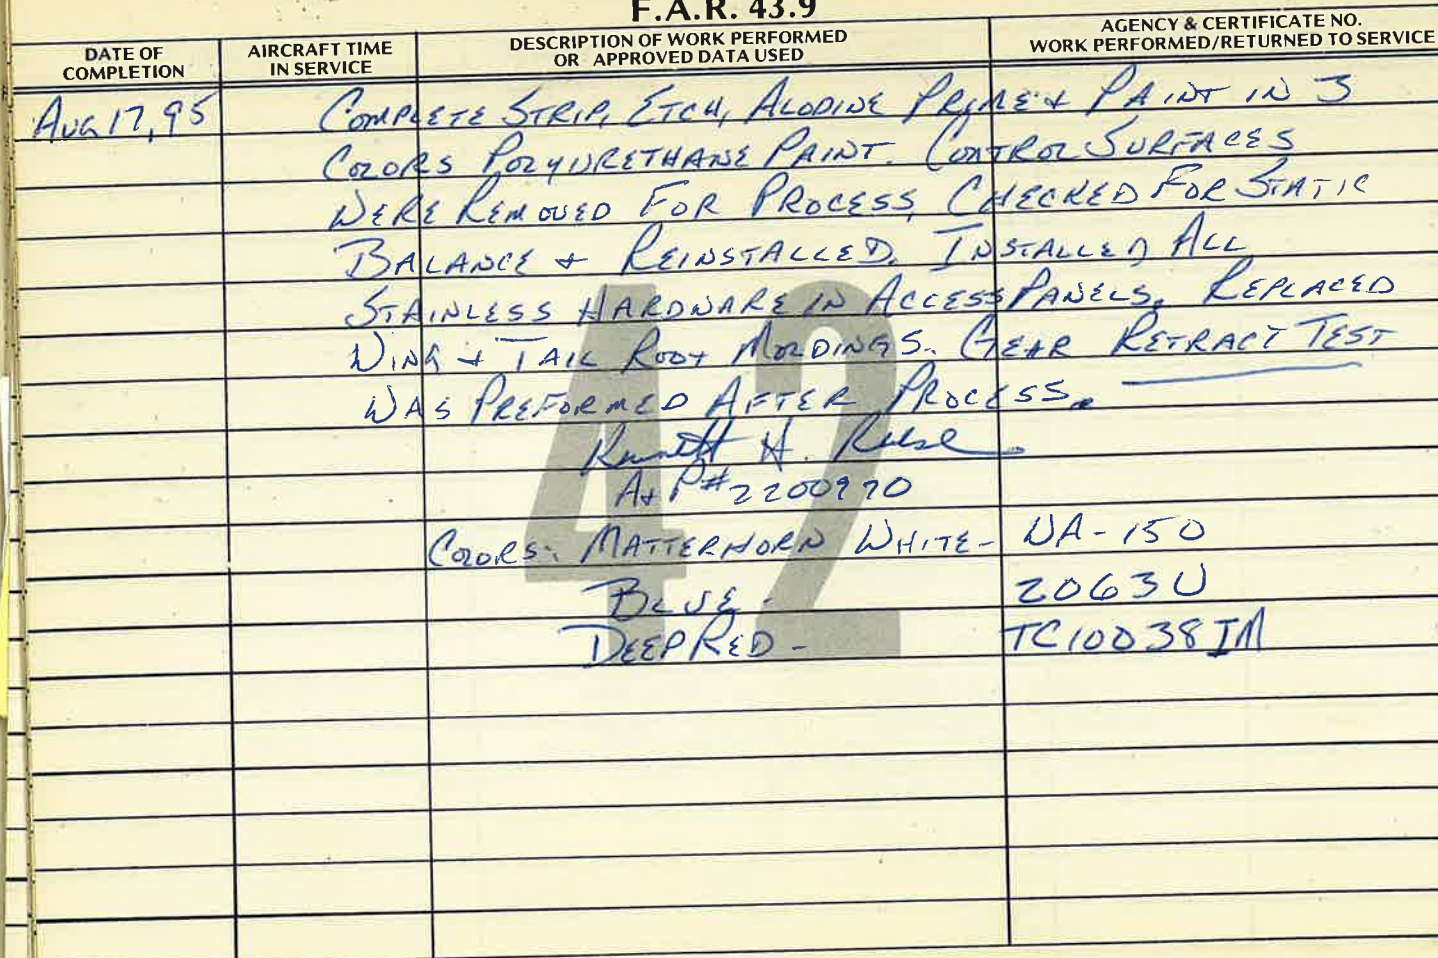 F.A.R. 43.9
DATE OF COMPLETION
AIRCRAFT TIME IN SERVICE
DESCRIPTION OF WORK PERFORMED OR APPROVED DATA USED
AGENCY & CERTIFICATE NO. WORK PERFORMED/RETURNED TO SERVICE
Aug 17, 95 COMPLETE STRIP, ETCH, ALODINE PRIME & PAINT IN 3
COLORS POLYURETHANE PAINT. CONTROL SURFACES
WERE REMOVED FOR PROCESS, CHECKED FOR STATIC
BALANCE & REINSTALLED. INSTALLED ALL
STAINLESS HARDWARE IN ACCESS PANELS. REPLACED
WING & TAIL ROOT MOLDINGS. GEAR RETRACT TEST
WAS PREFORMED AFTER PROCESS.
Kenneth H. Reese
A&P# 2200970
COLORS: MATTERHORN WHITE - UA-150
BLUE - 2063U
DEEP RED - TC10038IM
42